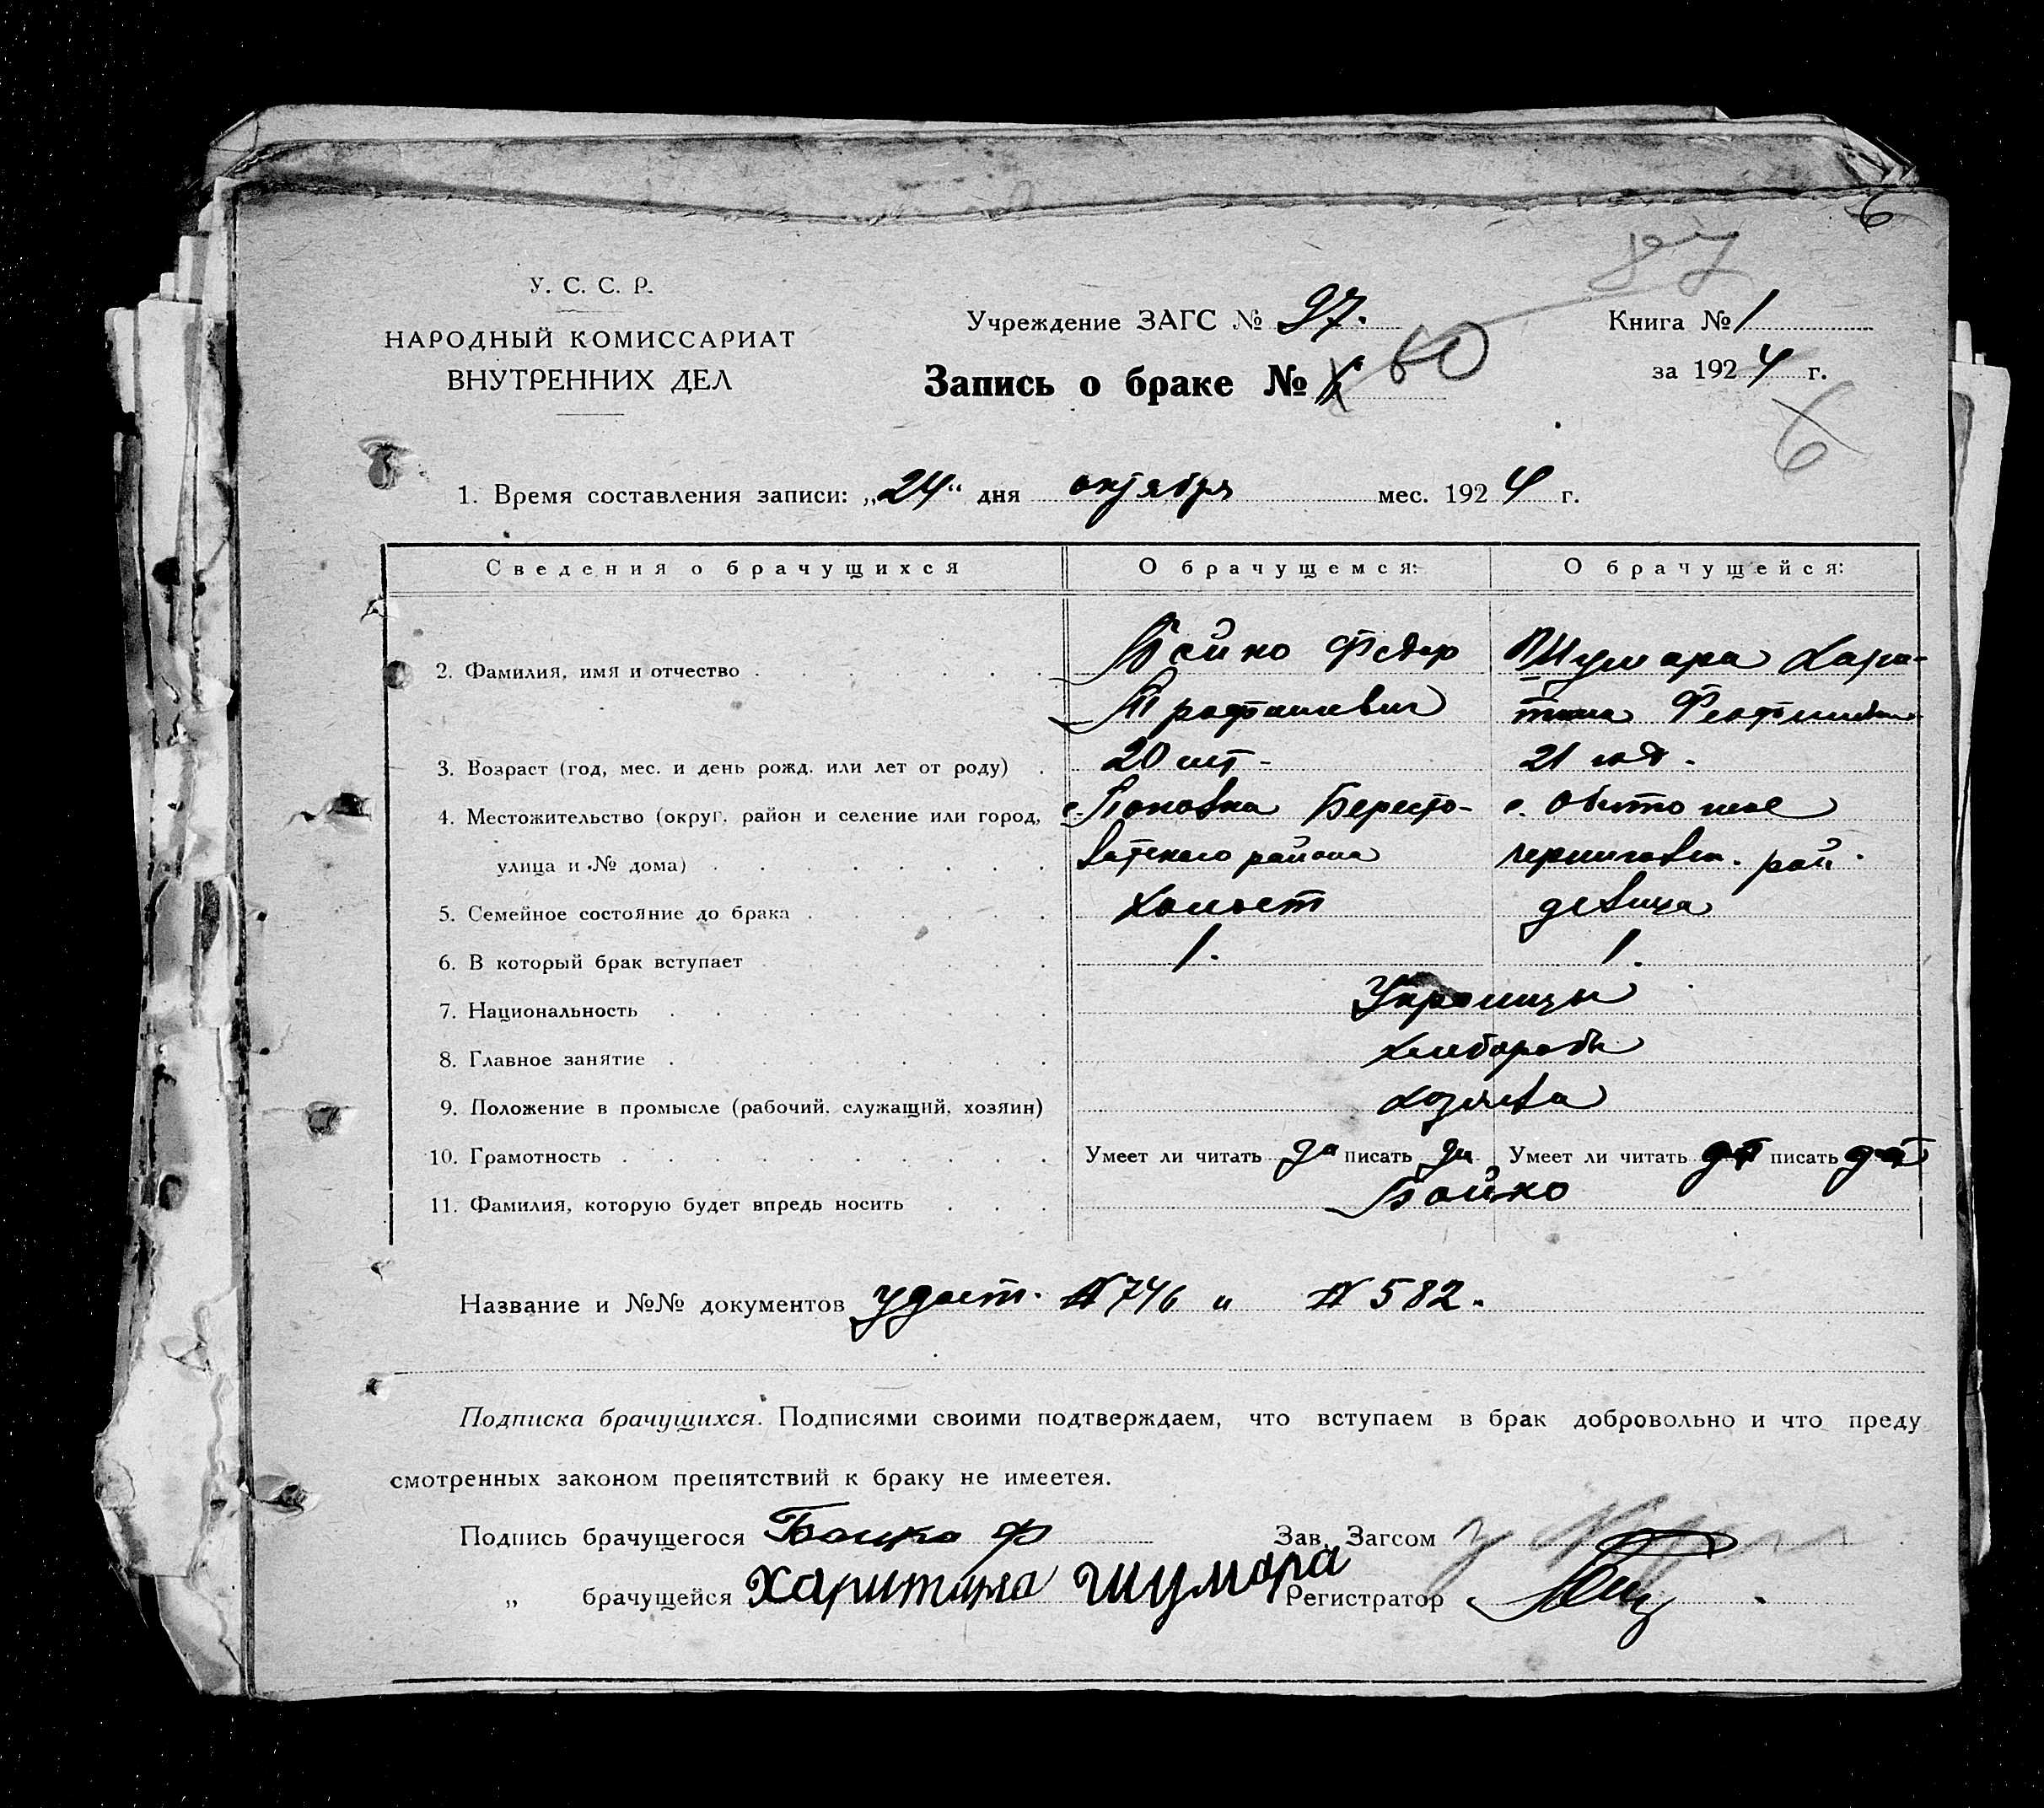 6
87
У. С. С. Р.
НАРОДНЫЙ КОМИССАРИАТ
ВНУТРЕННИХ ДЕЛ
Учреждение ЗАГС № 97.
Книга № 1
Запись о браке № 60
за 1924 г.
6
1. Время составления записи: „24“ дня октября мес. 1924 г.
Сведения о брачущихся О брачущемся: О брачущейся:
Бойко Федор Шумара Хари-
2. Фамилия, имя и отчество
Трофимович тина
3. Возраст (год, мес. и день рожд. или лет от роду) 20 лет- 21 год.
4. Местожительство (округ, район и селение или город, с. Поповка Бересто- с. Обиточное
улица и № дома) ватского района Черниговск. рай.
5. Семейное состояние до брака Холост девица
6. В который брак вступает 1. 1.
7. Национальность Украинцы
8. Главное занятие хлеборобы
9. Положение в промысле (рабочий, служащий, хозяин) хозяева
10. Грамотность Умеет ли читать да писать да Умеет ли читать да писать да
11. Фамилия, которую будет впредь носить Бойко
Название и №№ документов удост. № 746 и № 582.
Подписка брачущихся. Подписями своими подтверждаем, что вступаем в брак добровольно и что преду
смотренных законом препятствий к браку не имеетея.
Подпись брачущегося Бойко Ф Зав. Загсом
„ брачущейся Харитина Шумара Регистратор